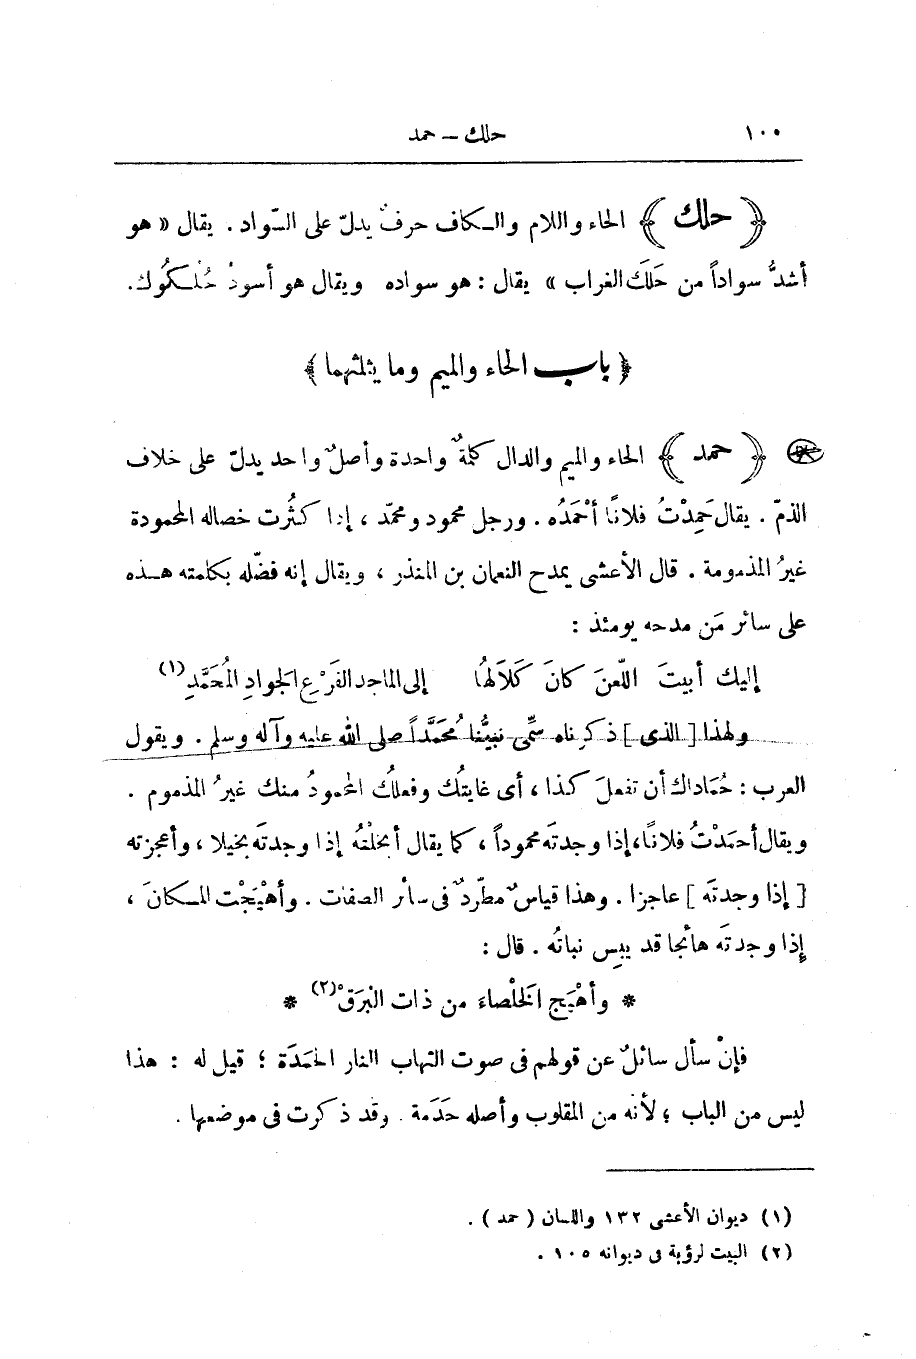 ١٠٠ حلك – حمد
﴿ حلك ﴾ الحاء واللام والكاف حرفٌ يدلّ على السّواد . يقال « هو
أشدُّ سواداً من حَلَك الغراب » يقال : هو سواده ويقال هو أسودُ حُلْكُوك.
﴿ باب الحاء والميم وما يثلثهما ﴾
﴿ حمد ﴾ الحاء والميم والدال كلمةٌ واحدة وأصلٌ واحد يدلّ على خلاف
الذمّ . يقال حَمِدْتُ فلانًا أحْمَدُه . ورجل محمود ومحمّد ، إذا كثُرت خصاله المحمودة
غيرُ المذمومة . قال الأعشى يمدح النعمان بن المنذر ، ويقال إنه فضّله بكلمته هـذه
على سائر مَن مدحه يومئذ :
إليك أبيتَ اللّعنَ كانَ كَلَالُها إلى الماجد الفَرْعِ الجوادِ المُحَمَّدِ (١)
ولهذا [ الذى ] ذكرناه سمِّى نبيُّنا مُحَمَّداً صلى الله عليه وآله وسلم . ويقول
العرب : حُمَاداك أن تفعلَ كذا ، أى غايتُك وفعلُك المحمودُ منك غيرُ المذموم .
ويقال أحمَدْتُ فلانًا، إذا وجدتَه محموداً ، كما يقال أبخلْتُه إذا وجدتَه بخيلا ، وأعجزته
[ إذا وجدتَه ] عاجزا . وهذا قياسٌ مطّردٌ فى سائر الصفات . وأهْيَجْت المـكانَ ،
إذا وجدتَه هائجا قد يبِس نباتُه . قال :
* وأهْيَج الخَلْصاءَ من ذات البُرَقْ (٢) *
فإنْ سأل سائلٌ عن قولهم فى صوت التهاب النار الحَمَدَة ؛ قيل له : هذا
ليس من الباب ؛ لأنه من المقلوب وأصله حَدَمة . وقد ذكرت فى موضعها .
(١) ديوان الأعشى ١٣٢ واللسان ( حمد ) .
(٢) البيت لرؤبة فى ديوانه ١٠٥ .